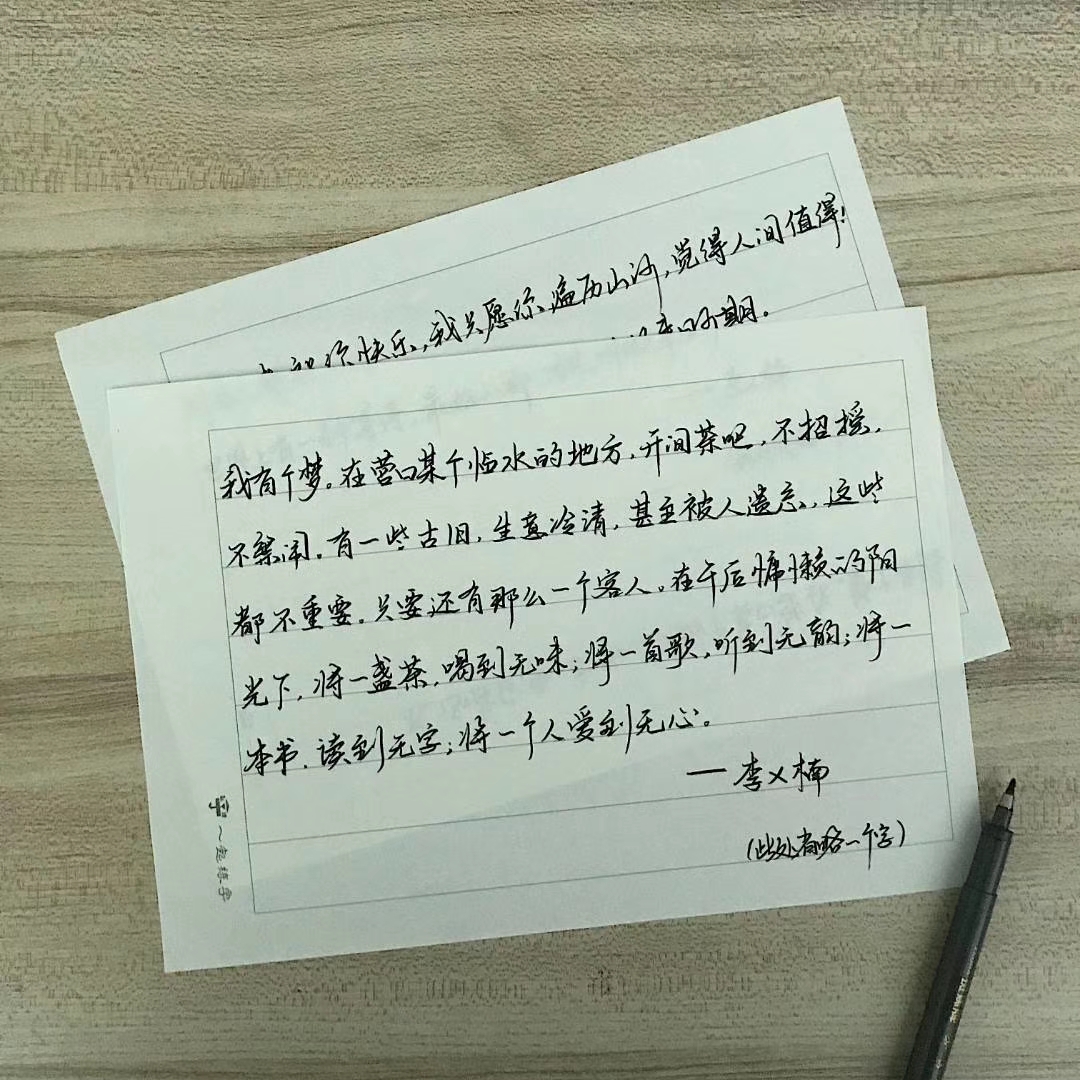 你快乐，我只愿你遍历山河，觉得人间值得！
期。
我有个梦。在营口某个临水的地方，开间茶吧，不招摇，
不繁闹。有一些古旧，生意冷清，甚至被人遗忘，这些
都不重要。只要还有那么一个客人。在午后慵懒的阳
光下，将一盏茶，喝到无味；将一首歌，听到无韵；将一
本书，读到无字；将一个人爱到无心。
— 李×楠
（此处省略一个字）
一起练字